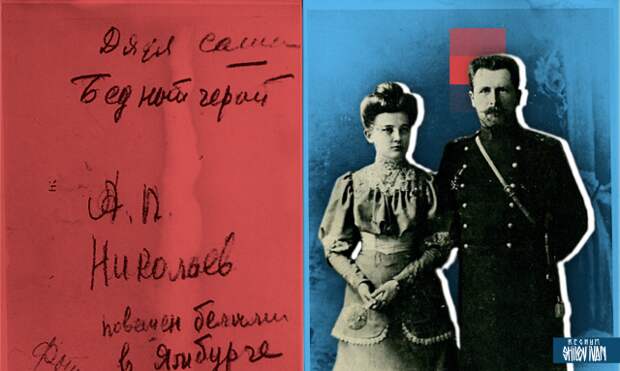 Дядя саша
Бедный герой
А. П.
Николаев
повешен белыми
в Ямбурге
REGNUM
SHILOV IVAN